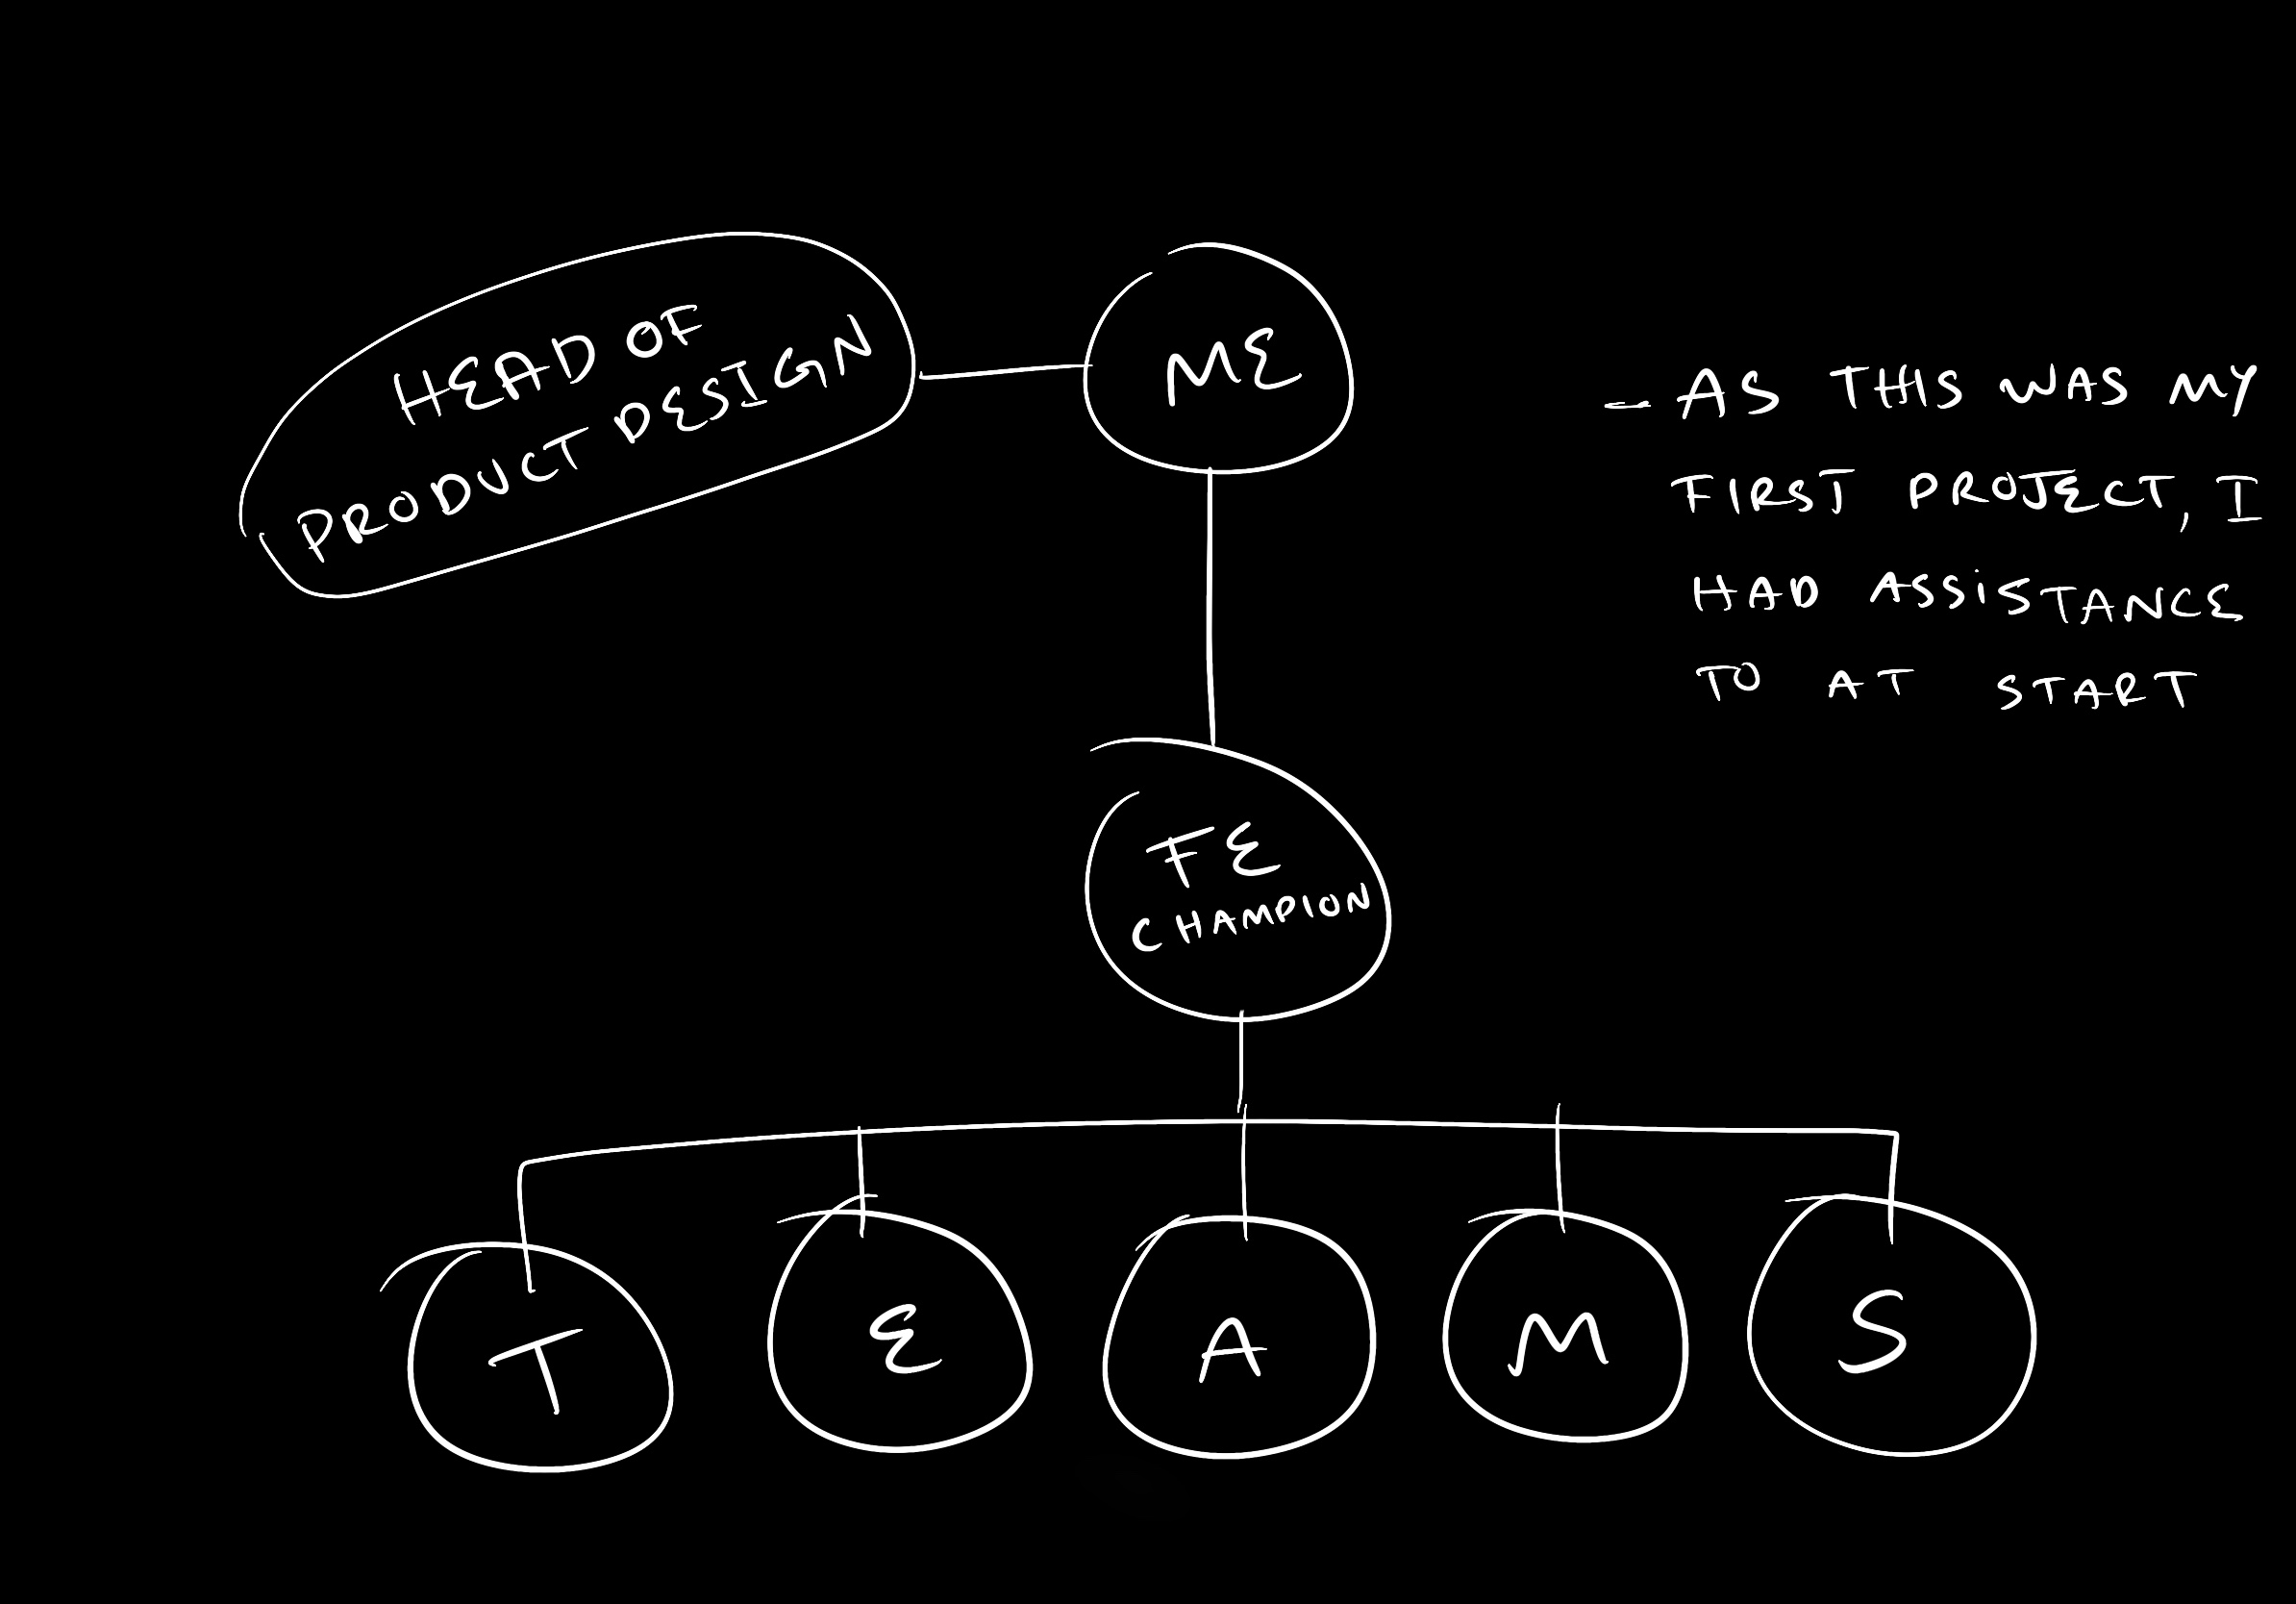 HEAD OF
PRODUCT DESIGN
ME
- AS THIS WAS MY
FIRST PROJECT, I
HAD ASSISTANCE
TO AT START
FE
CHAMPION
T
E
A
M
S